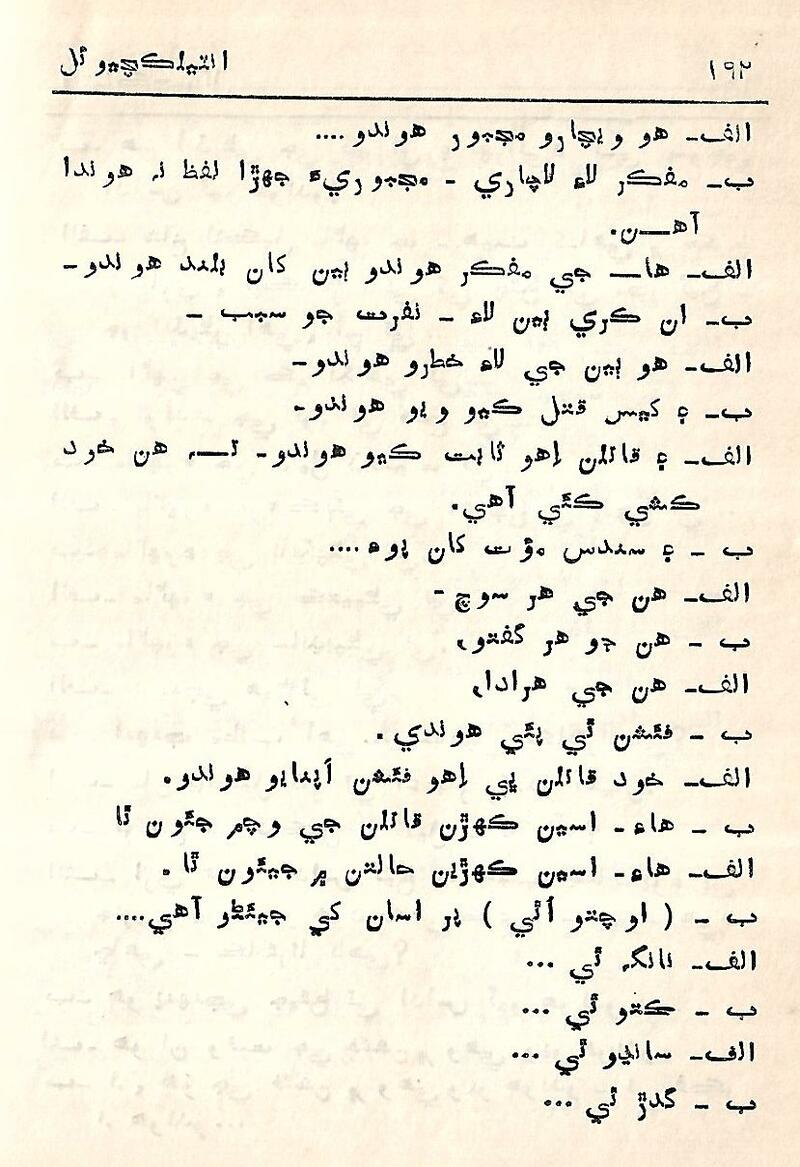 ۱۹۲
انٽيلڪچيوئل
الف- هو ويچارو مجبور هوندو....
ب- مفڪر لاءِ لاچاري - مجبوريءَ جهڙا لفظ نہ هوندا
آهـــن.
الف- هاــ جي مفڪر هوندو ٻين کان بلند هوندو-
ب- ان ڪري ٻين لاءِ - نفرت جو سبب -
الف- هو ٻين جي لاءِ خطرو هوندو-
ب- ۽ کيس قتل ڪيو ويو هوندو-
الف- ۽ قاتلن اهو ثابت ڪيو هوندو- تــہ هن خود
ڪشي ڪئي آهي.
ب - ۽ سندس موت کان پوءِ....
الف- هن جي هر سوچ -
ب - هن جو هر گفتو،
الف- هن جي هرادا،
ب - فئشن ٿي پئي هوندي.
الف- خود قاتلن پي اهو فئشن اپنايو هوندو.
ب - هاءِ- اسين ڪهڙن قاتلن جي وچ۾ جئون ٿا
الف- هاءِ- اسين ڪهڙين حالتن ۾ جيئون ٿا.
ب - ( اوچتو اٿي ) پر اسان کي جيئڻو آهي....
الف- نانگہ ٿي ...
ب - ڪتو ٿي ...
الف- سانڍو ٿي ...
ب - گدڙ ٿي ...